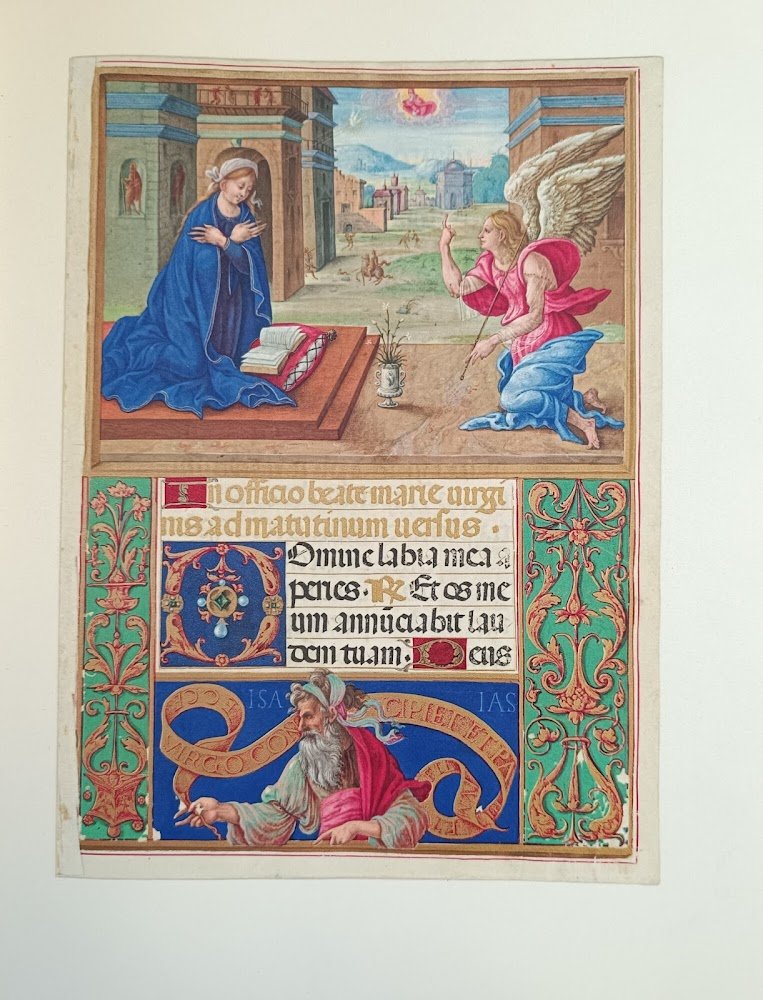 In officio beate marie uirgi
nis ad matutinum uersus ·
Domine labia mea a
peries · R Et os me
um annūciabit lau
dem tuam : Deus
ISA IAS
ECCE
VIRGO CON
CIPIET